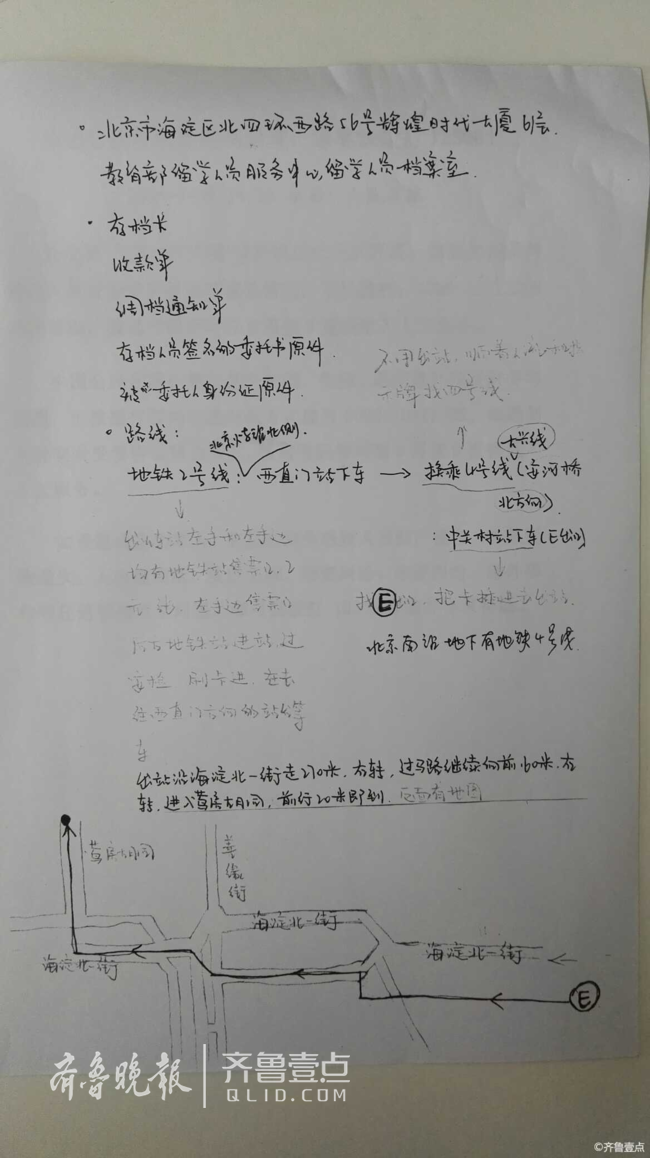 北京市海淀区北四环西路56号辉煌时代大厦6层.
教育部留学人员服务中心,留学人员档案室.
存档卡
收款单
调档通知单
存档人员签名的委托书原件.
被委托人身份证原件.
不用出站,顺着人流和
示牌找四号线.
路线:
北京火车站北侧
大兴线
地铁2号线:西直门站下车 → 换乘4号线(安河桥
北方向)
:中关村站下车(E出口)
均有地铁站售票口,2
元
左手边售票口
找E出口,把卡
北京南站地下有地铁4号线
刷卡进
往西直门方向的站台等
车
出站沿海淀北一街走270米,右转,过马路继续向前160米,右
转,进入菖房胡同,前行20米即到.后面有地图
菖房胡同
善缘街
海淀北一街
海淀北一街
海淀北一街
E
齐鲁晚报
齐鲁壹点
QLID.COM
©齐鲁壹点